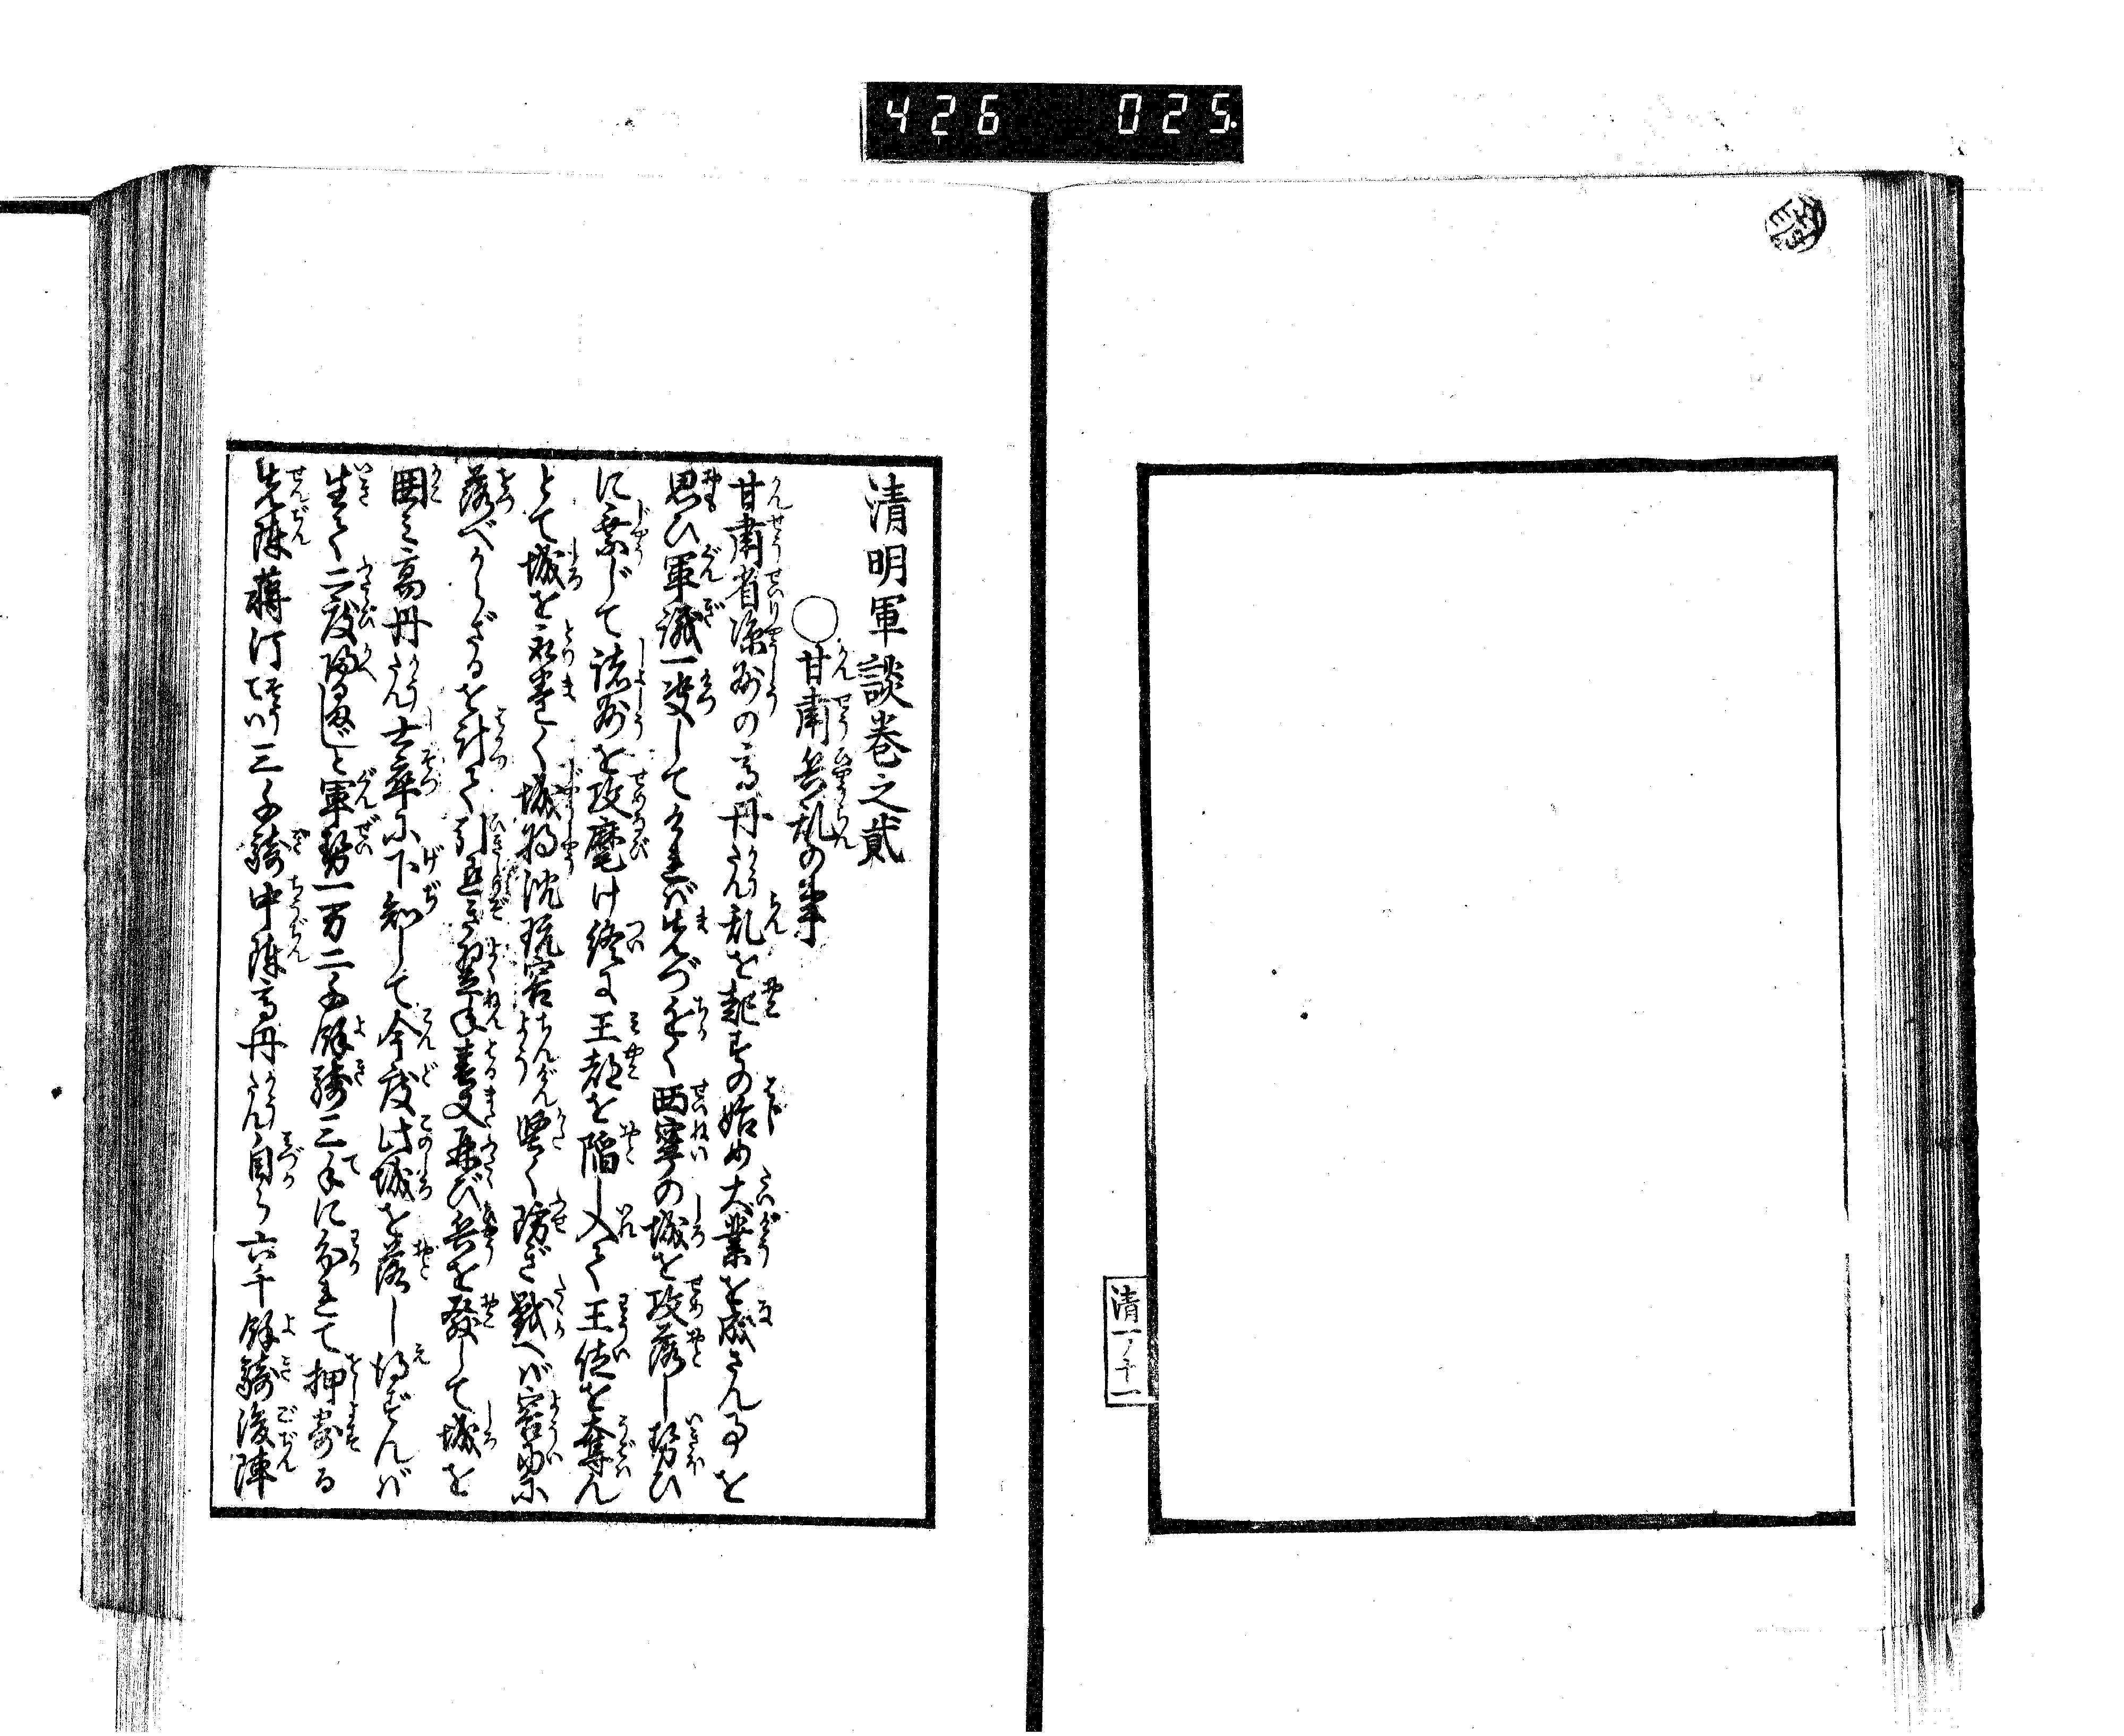 426 025
清一ノ子一
清明軍談巻之貳
○甘肅兵乱の事
甘肅省涼州の高丹乱を起すの始め大業を成さん事を
思ひ軍議一决して今まば先づ近く西寧の城を攻落し勢ひ
に乗じて諸州を攻麾け終に王都を陥し入て王位を奪ん
とて城を取巻く城将沈玩容堅く防ぎ戦へば容易に
落べからざるを計て引退き翌年春又再び兵を發して城を
囲み高丹士卒に下知して今度此城を落し得ずんば
生て二度帰るまじと軍勢一万二千余騎三手に分れて押寄る
先陣蒋汀三千騎中陣高丹自ら六千余騎後陣